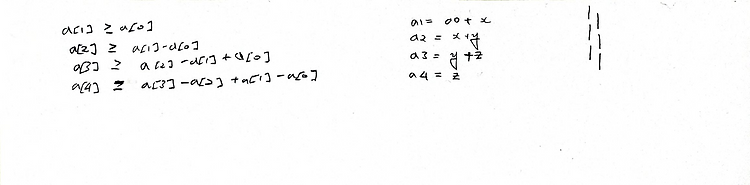 a[1] ≥ a[0]
a[2] ≥ a[1]-a[0]
a[3] ≥ a[2]-a[1]+a[0]
a[4] ≥ a[3]-a[2]+a[1]-a[0]
a1 = a0 + x
a2 = x+y
a3 = y+z
a4 = z